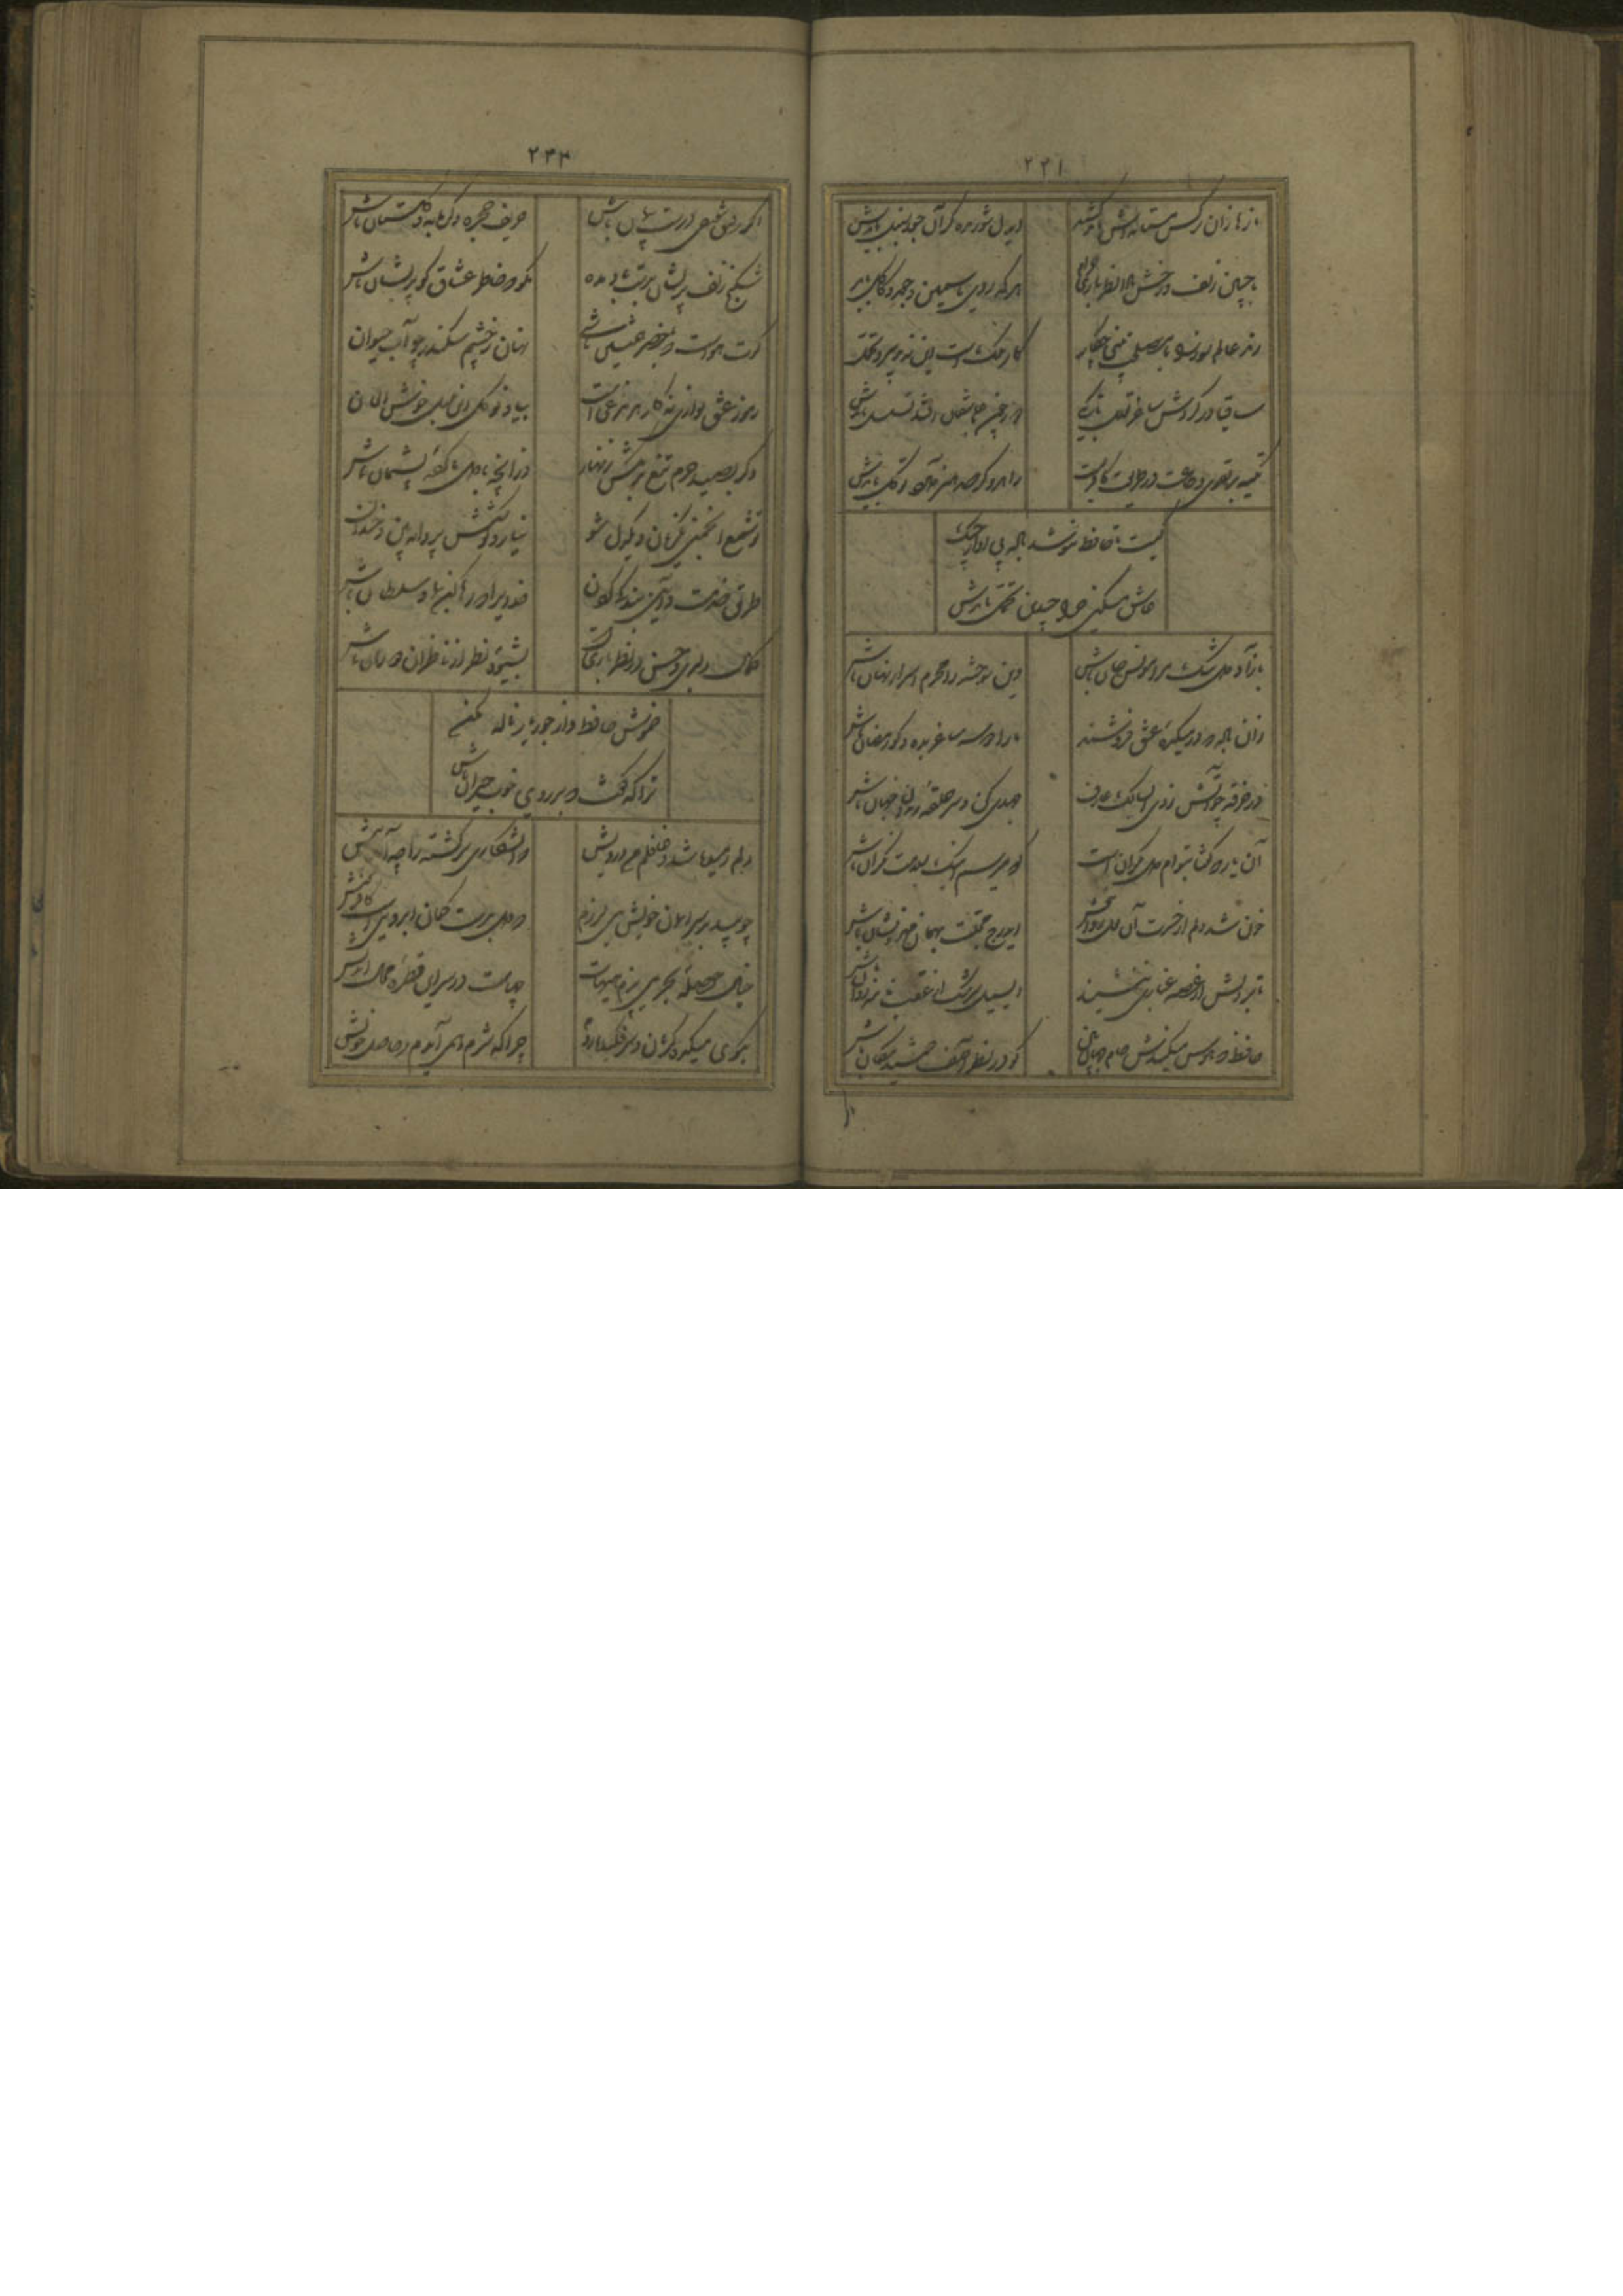 ۲۳۱
نازها زان نرگس مستانه‌اش باید کشید
ایدل شوریده گر آن جعد سنبل بایدش
با چنین زلف و رخش بادا نظربازی حرام
هر که روی یاسمین و جعد و کاکل بایدش
رند عالم سوز را با مصلحت بینی چکار
کار ملک است این که تدبیر و تحمل
ساقیا در گردش ساغر تعلل تا بکی
دور چون با عاشقان افتد تسلسل بایدش
تکیه بر تقوی و دانش در طریقت کافریست
راهرو گر صد هنر دارد توکل بایدش
کیست حافظ تا ننوشد باده بی آواز چنگ
عاشق مسکین چرا چندین تحمل بایدش
باز آ و دل تنگ مرا مونس جان باش
وین سوخته را محرم اسرار نهان باش
زان باده که در میکده عشق فروشند
ما را دو سه ساغر بده و گو رمضان باش
در خرقه چو آتش زدی ای سالک عارف
جهدی کن و سر حلقه رندان جهان باش
آن یار که گفتا بتوام دل نگران است
گو میرسم اینک بسلامت نگران باش
خون شد دلم از حسرت آن لعل روان بخش
ای درج محبت بهمان مهر و نشان باش
تا بر دلش از غصه غباری ننشیند
ای سیل سرشک از عقب نامه روان باش
حافظ که هوس میکندش جام جهان بین
گو در نظر آصف جمشید مکان باش
۲۳۲
اگر رفیق شفیقی درست پیمان باش
حریف حجره و گرمابه و گلستان باش
شکنج زلف پریشان بدست باد مده
مگو که خاطر عشاق گو پریشان باش
گرت هواست که با خضر همنشین باشی
نهان ز چشم سکندر چو آب حیوان باش
رموز عشق نوازی نه کار هر مرغی است
بیا و نوگل این بلبل غزلخوان
دگر بصید حرم تیغ بر مکش زنهار
وز آنچه با دل ما کرده پشیمان باش
تو شمع انجمنی یکزبان و یکدل شو
خیال و کوشش پروانه بین و خندان باش
طریق خدمت و آیین بندگی کردن
خدایرا که رها کن بما و سلطان باش
کمال دلبری و حسن در نظربازی است
بشیوه نظر از نادران دوران باش
خموش حافظ و از جور یار ناله مکن
ترا که گفت که بر روی خوب حیران باش
دلم رمیده شد و غافلم من درویش
که آن شکاری سرگشته را چه آمد پیش
چو بید بر سر ایمان خویش می لرزم
که دل بدست کمان ابرویست کافر کیش
خیال حوصله بحر می پزم هیهات
چهاست در سر این قطره محال اندیش
بکوی میکده گریان و سرفکنده روم
چرا که شرم همی آیدم ز حاصل خویش